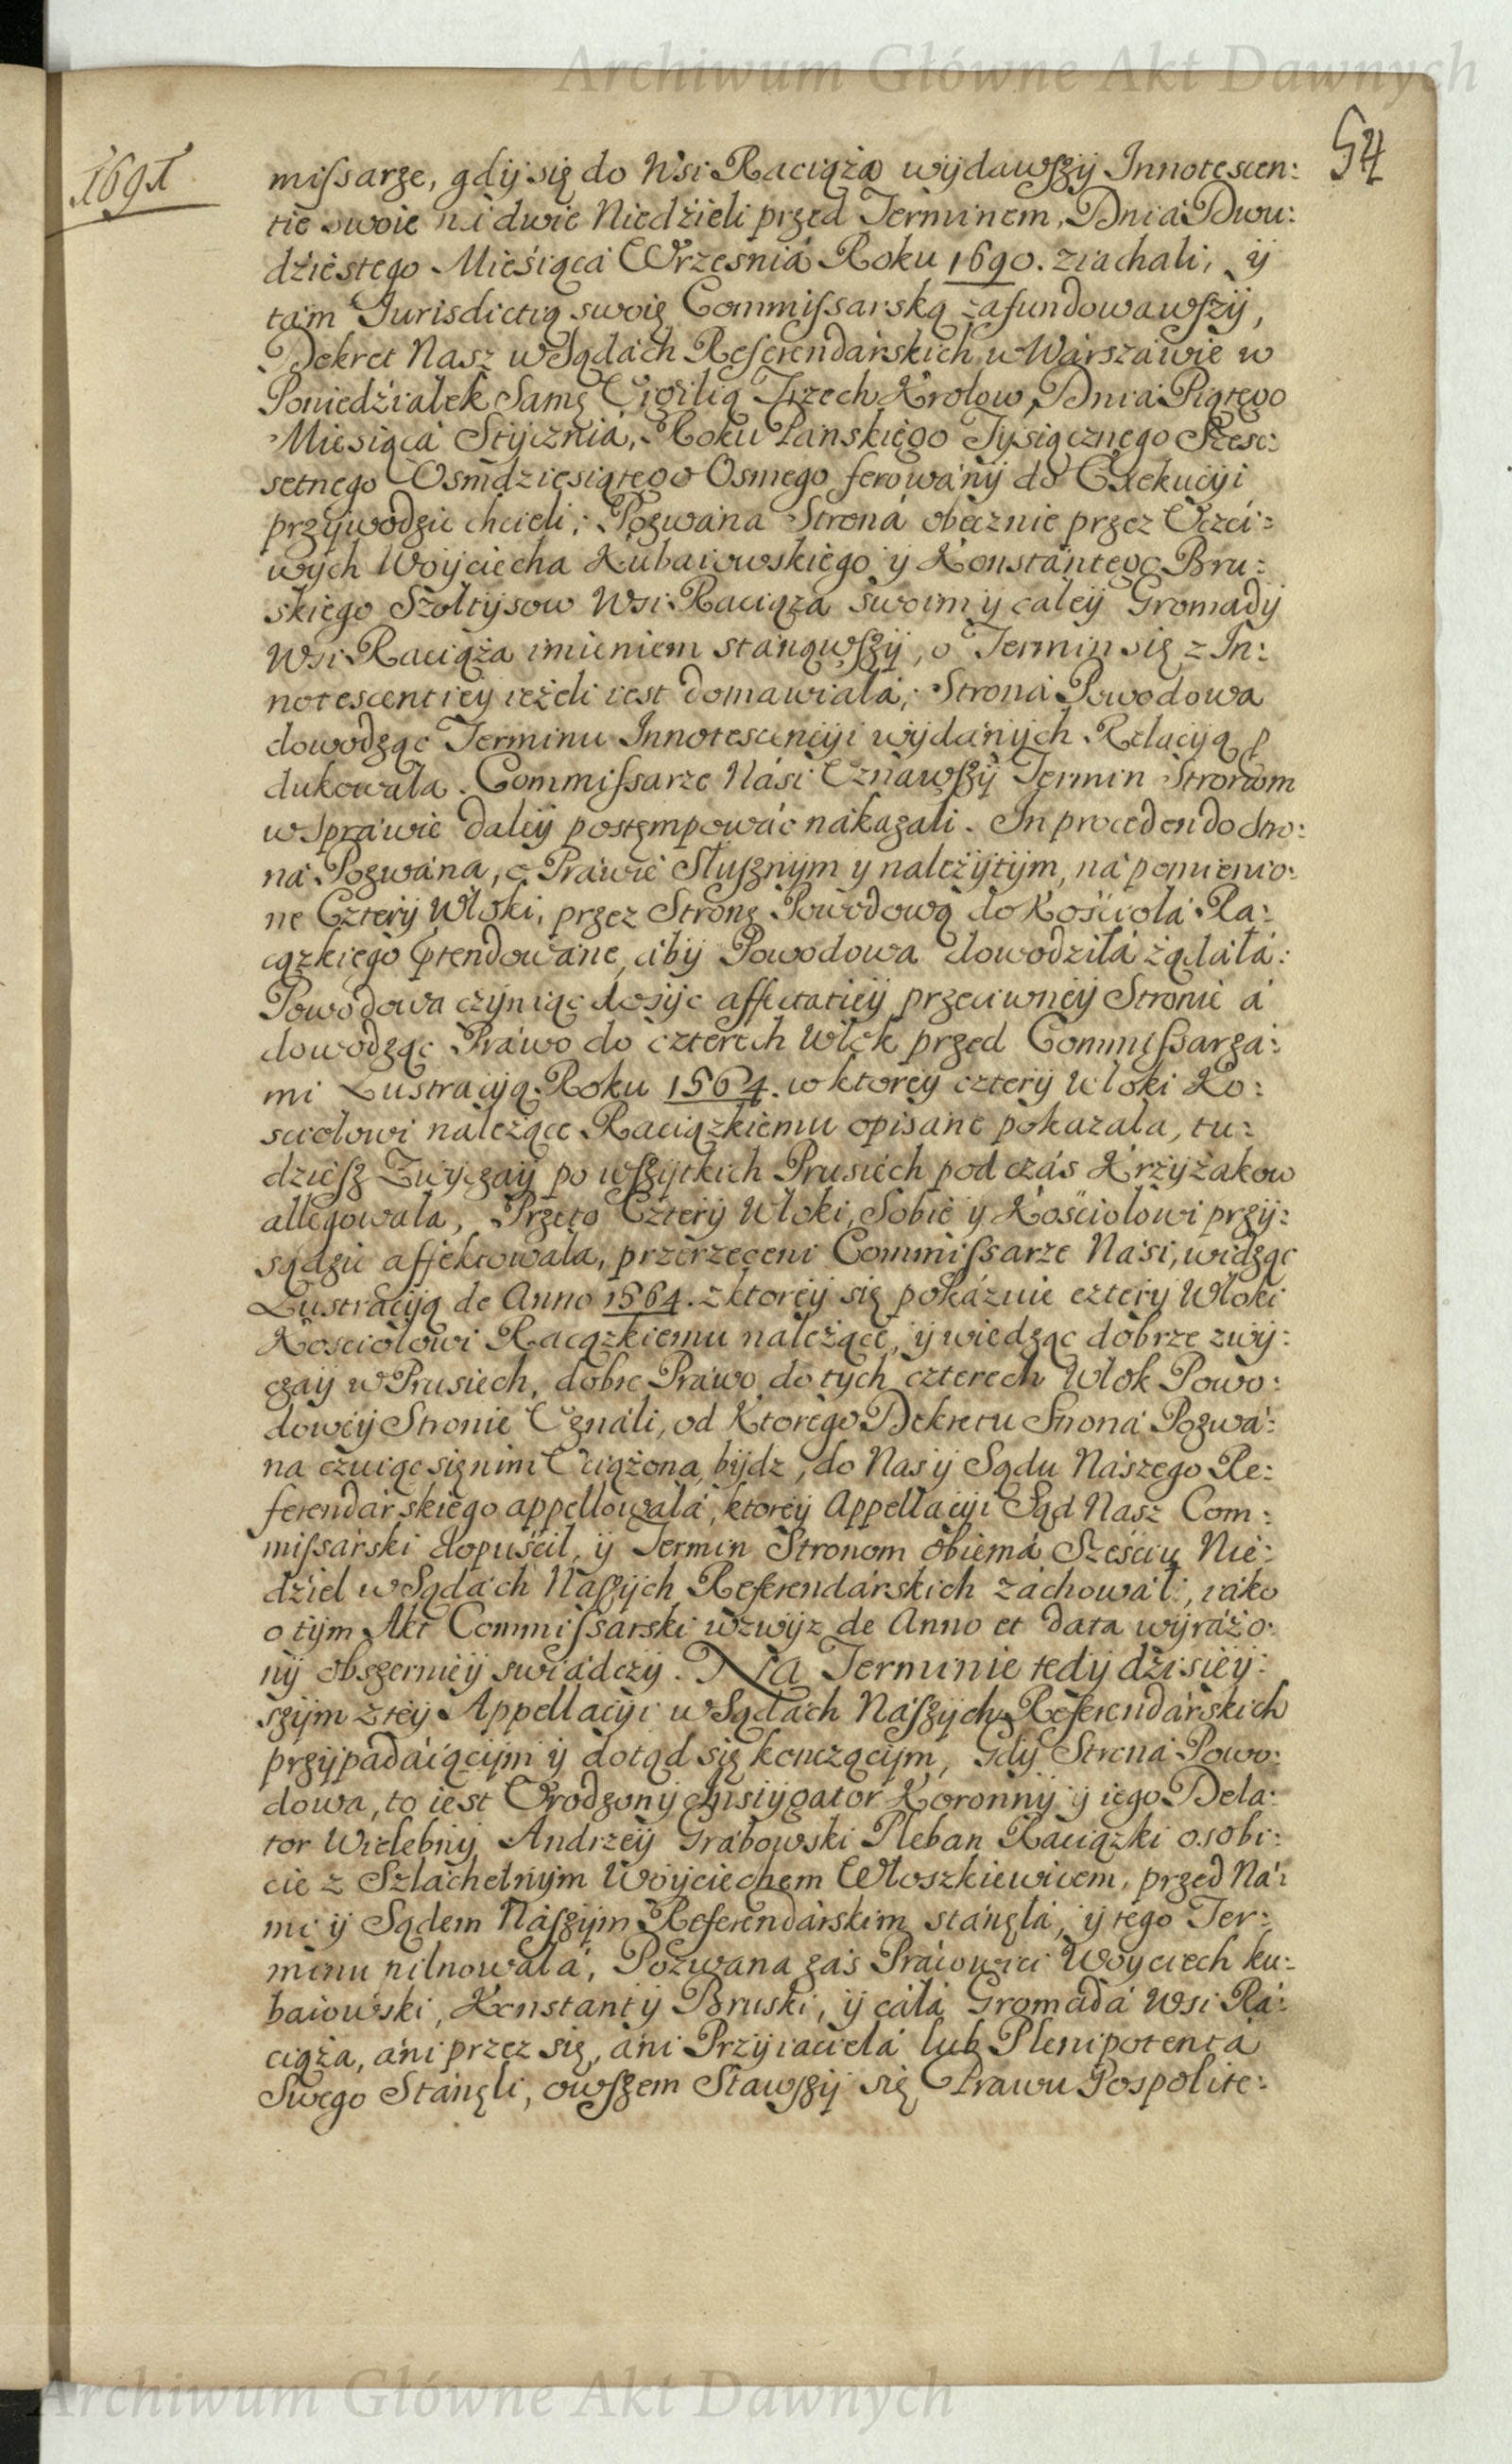 Archiwum Główne Akt Dawnych
54
1691
missarze, gdÿ się do Wsi Raciąża wÿdawszÿ Innotescen:
tie swoie na dwie Niedźieli przed Terminem, Dnia Dwu:
dźiestego Mieśiąca Wrzesnia Roku 1690. ziachali, ÿ
tam Jurisdictią swoię Commissarską zafundowawszÿ,
Dekret Nasz w Sądach Referendarskich w Warszawie w
Poniedźiałek Samę Vigilią Trzech Krolow, Dnia Piątego
Miesiąca Stÿcznia, Roku Panskiego Tysiącznego Szesc:
setnego Osmdziesiątego Osmego ferowanÿ do Exekucÿi
przÿwodzic chcieli; Pozwana Strona obecznie przez Vczci:
wÿch Woÿciecha Kubaiowskiego ÿ Konstantego Bru:
skiego Szołtÿsow Wsi Raciąza swoim ÿ całeÿ Gromadÿ
Wsi Raciąża imieniem stanąwszÿ, o Termin się z In:
notescentieÿ ieżeli iest domawiała; Strona Powodowa
dowodząc Terminu Innotescencÿi wÿdanÿch Relacÿą p
dukowała. Commissarze Nási Vznawszÿ Termin Stronom
w Sprawie daleÿ postęmpować nakazali. In procedendo Stro:
na Pozwana, o Prawie Słusznÿm y należÿtÿm, na pomienio:
ne Czterÿ Włoki, przez Stronę Powodową do Kośćioła Ra:
cązkiego prtendowane, abÿ Powodowa dowodziła żądała:
Powodowa czÿniąc dosÿc affectatieÿ przeciwneÿ Stronie á
dowodząc Prawo do czterech Włok przed Commissarza:
mi Lustracÿą Roku 1564. w ktoreÿ czterÿ Włoki Ko:
sciołowi nalezące Raciązkiemu opisane pokazała, tu:
dziesz Zwÿczaÿ po wszÿtkich Prusiech pod czás Krzÿżakow
allegowała, Przeto Czterÿ Włoki, Sobie ÿ Kośćiołowi przÿ:
sądzić affektowała, przerzeczeni Commissarze Nasi, widząc
Lustracÿą de Anno 1564. z ktoreÿ się pokázuie czterÿ Włoki
Kosciołowi Racązkiemu należące, ÿ wiedząc dobrze zwÿ:
czaÿ w Prusiech, dobre Prawo do tych czterech Włok Powo:
doweÿ Stronie Vználi, od Ktorego Dekretu Strona Pozwa:
na czuiąc się nim Vciążona bÿdz, do Nas ÿ Sądu Nászego Re:
ferendarskiego appellowała, ktoreÿ Appellacÿi Sąd Nasz Com:
missarski dopuśćił, ÿ Termin Stronom obiemá Sześciu Nie:
dźiel w Sądach Naszÿch Referendárskich záchowáł, iáko
o tÿm Akt Commissarski wzwÿz de Anno et data wÿrázo:
nÿ obszernieÿ swiadczÿ. Na Terminie tedÿ dźisieÿ:
szÿm z teÿ Appellacÿi w Sądach Nászÿch Referendárskich
przÿpadáiącÿm ÿ dotąd się kończącÿm, Gdÿ Strona Powo:
dowa, to iest Vrodzonÿ Instÿgator Koronnÿ ÿ iego Dela:
tor Wielebnÿ Andrzeÿ Grabowski Pleban Raciązki osobi:
cie z Szlachetnÿm Woÿciechem Włoszkiewicem, przed Na:
mi ÿ Sądem Nászÿm Referendárskim stánęłá, ÿ tego Ter:
minu pilnowała, Pozwana zaś Pracowici Woÿciech Ku:
baiowski, Konstantÿ Bruski, ÿ cáłá Gromadá Wsi Rá:
ciąża, áni przez się, áni Przÿiacielá lub Plenipotentá
Swego Stánęli, owszem Stawszÿ się Prawu Pospolite:
Archiwum Główne Akt Dawnych